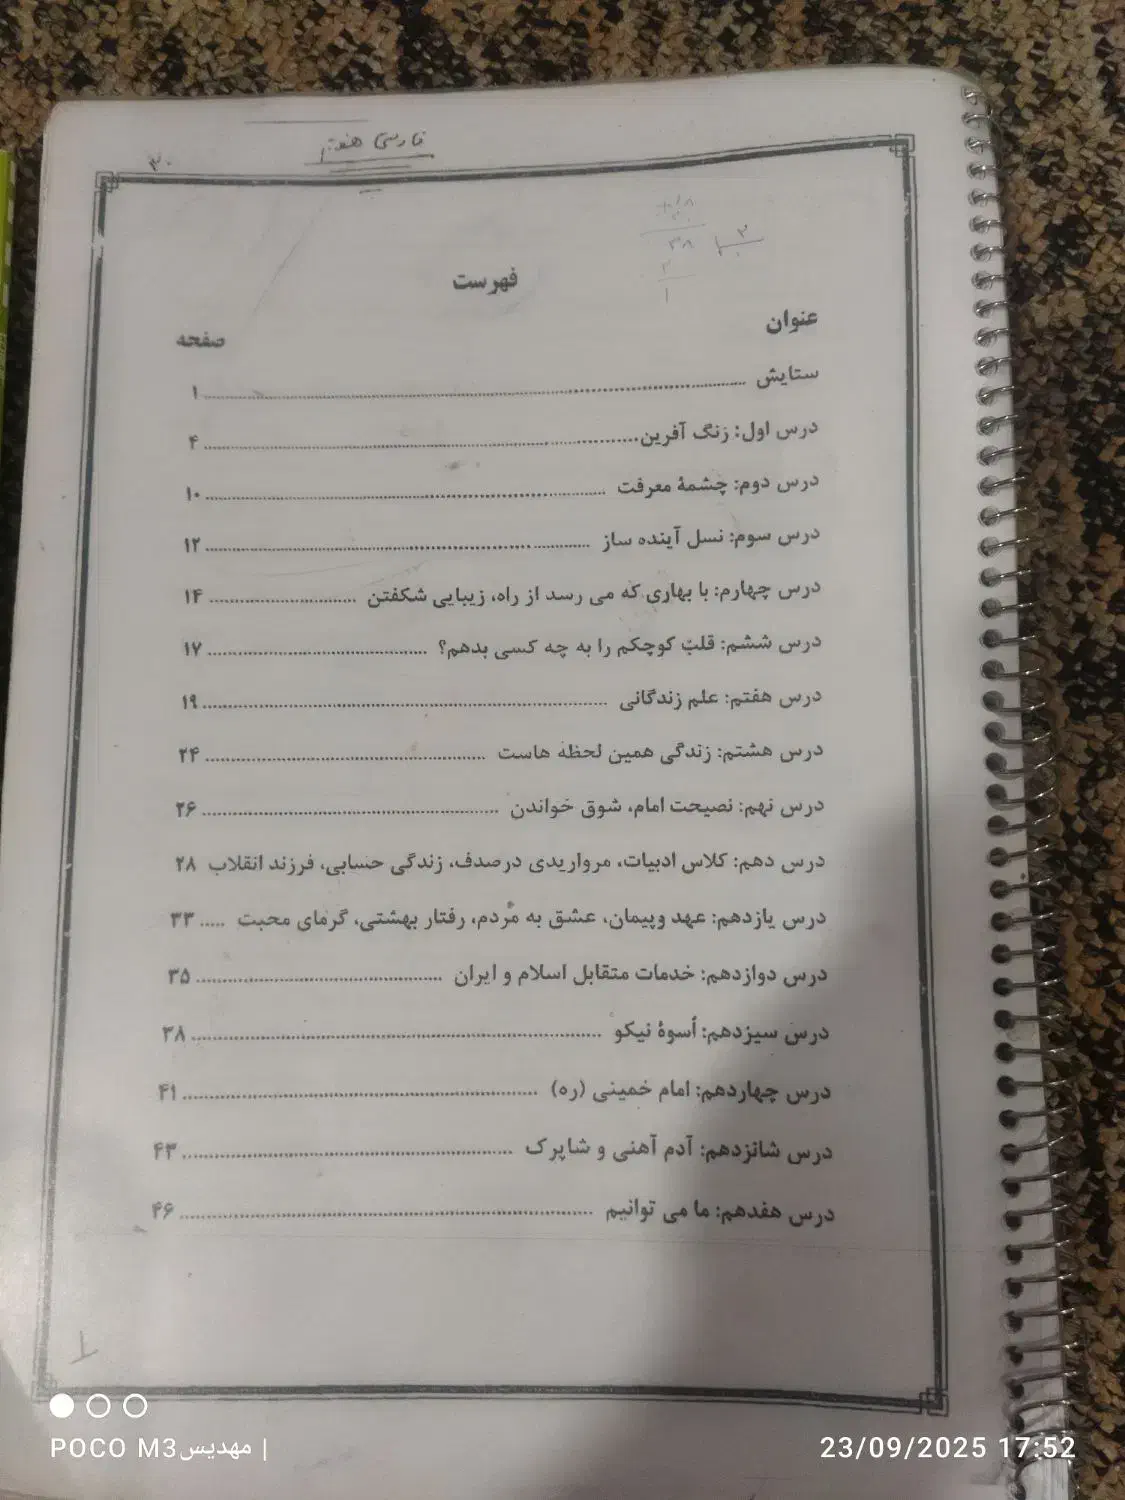 فارسی هفتم
۳۰
فهرست
عنوان
صفحه
ستایش ........ ۱
درس اول: زنگ آفرین ........ ۴
درس دوم: چشمهٔ معرفت ........ ۱۰
درس سوم: نسل آینده ساز ........ ۱۲
درس چهارم: با بهاری که می رسد از راه، زیبایی شکفتن ........ ۱۴
درس ششم: قلبِ کوچکم را به چه کسی بدهم؟ ........ ۱۷
درس هفتم: علم زندگانی ........ ۱۹
درس هشتم: زندگی همین لحظه هاست ........ ۲۴
درس نهم: نصیحت امام، شوق خواندن ........ ۲۶
درس دهم: کلاس ادبیات، مرواریدی درصدف، زندگی حسابی، فرزند انقلاب ۲۸
درس یازدهم: عهد وپیمان، عشق به مردم، رفتار بهشتی، گرمای محبت ..... ۳۳
درس دوازدهم: خدمات متقابل اسلام و ایران ........ ۳۵
درس سیزدهم: اُسوهٔ نیکو ........ ۳۸
درس چهاردهم: امام خمینی (ره) ........ ۴۱
درس شانزدهم: آدم آهنی و شاپرک ........ ۴۳
درس هفدهم: ما می توانیم ........ ۴۶
POCO M3مهدیس |
23/09/2025 17:52